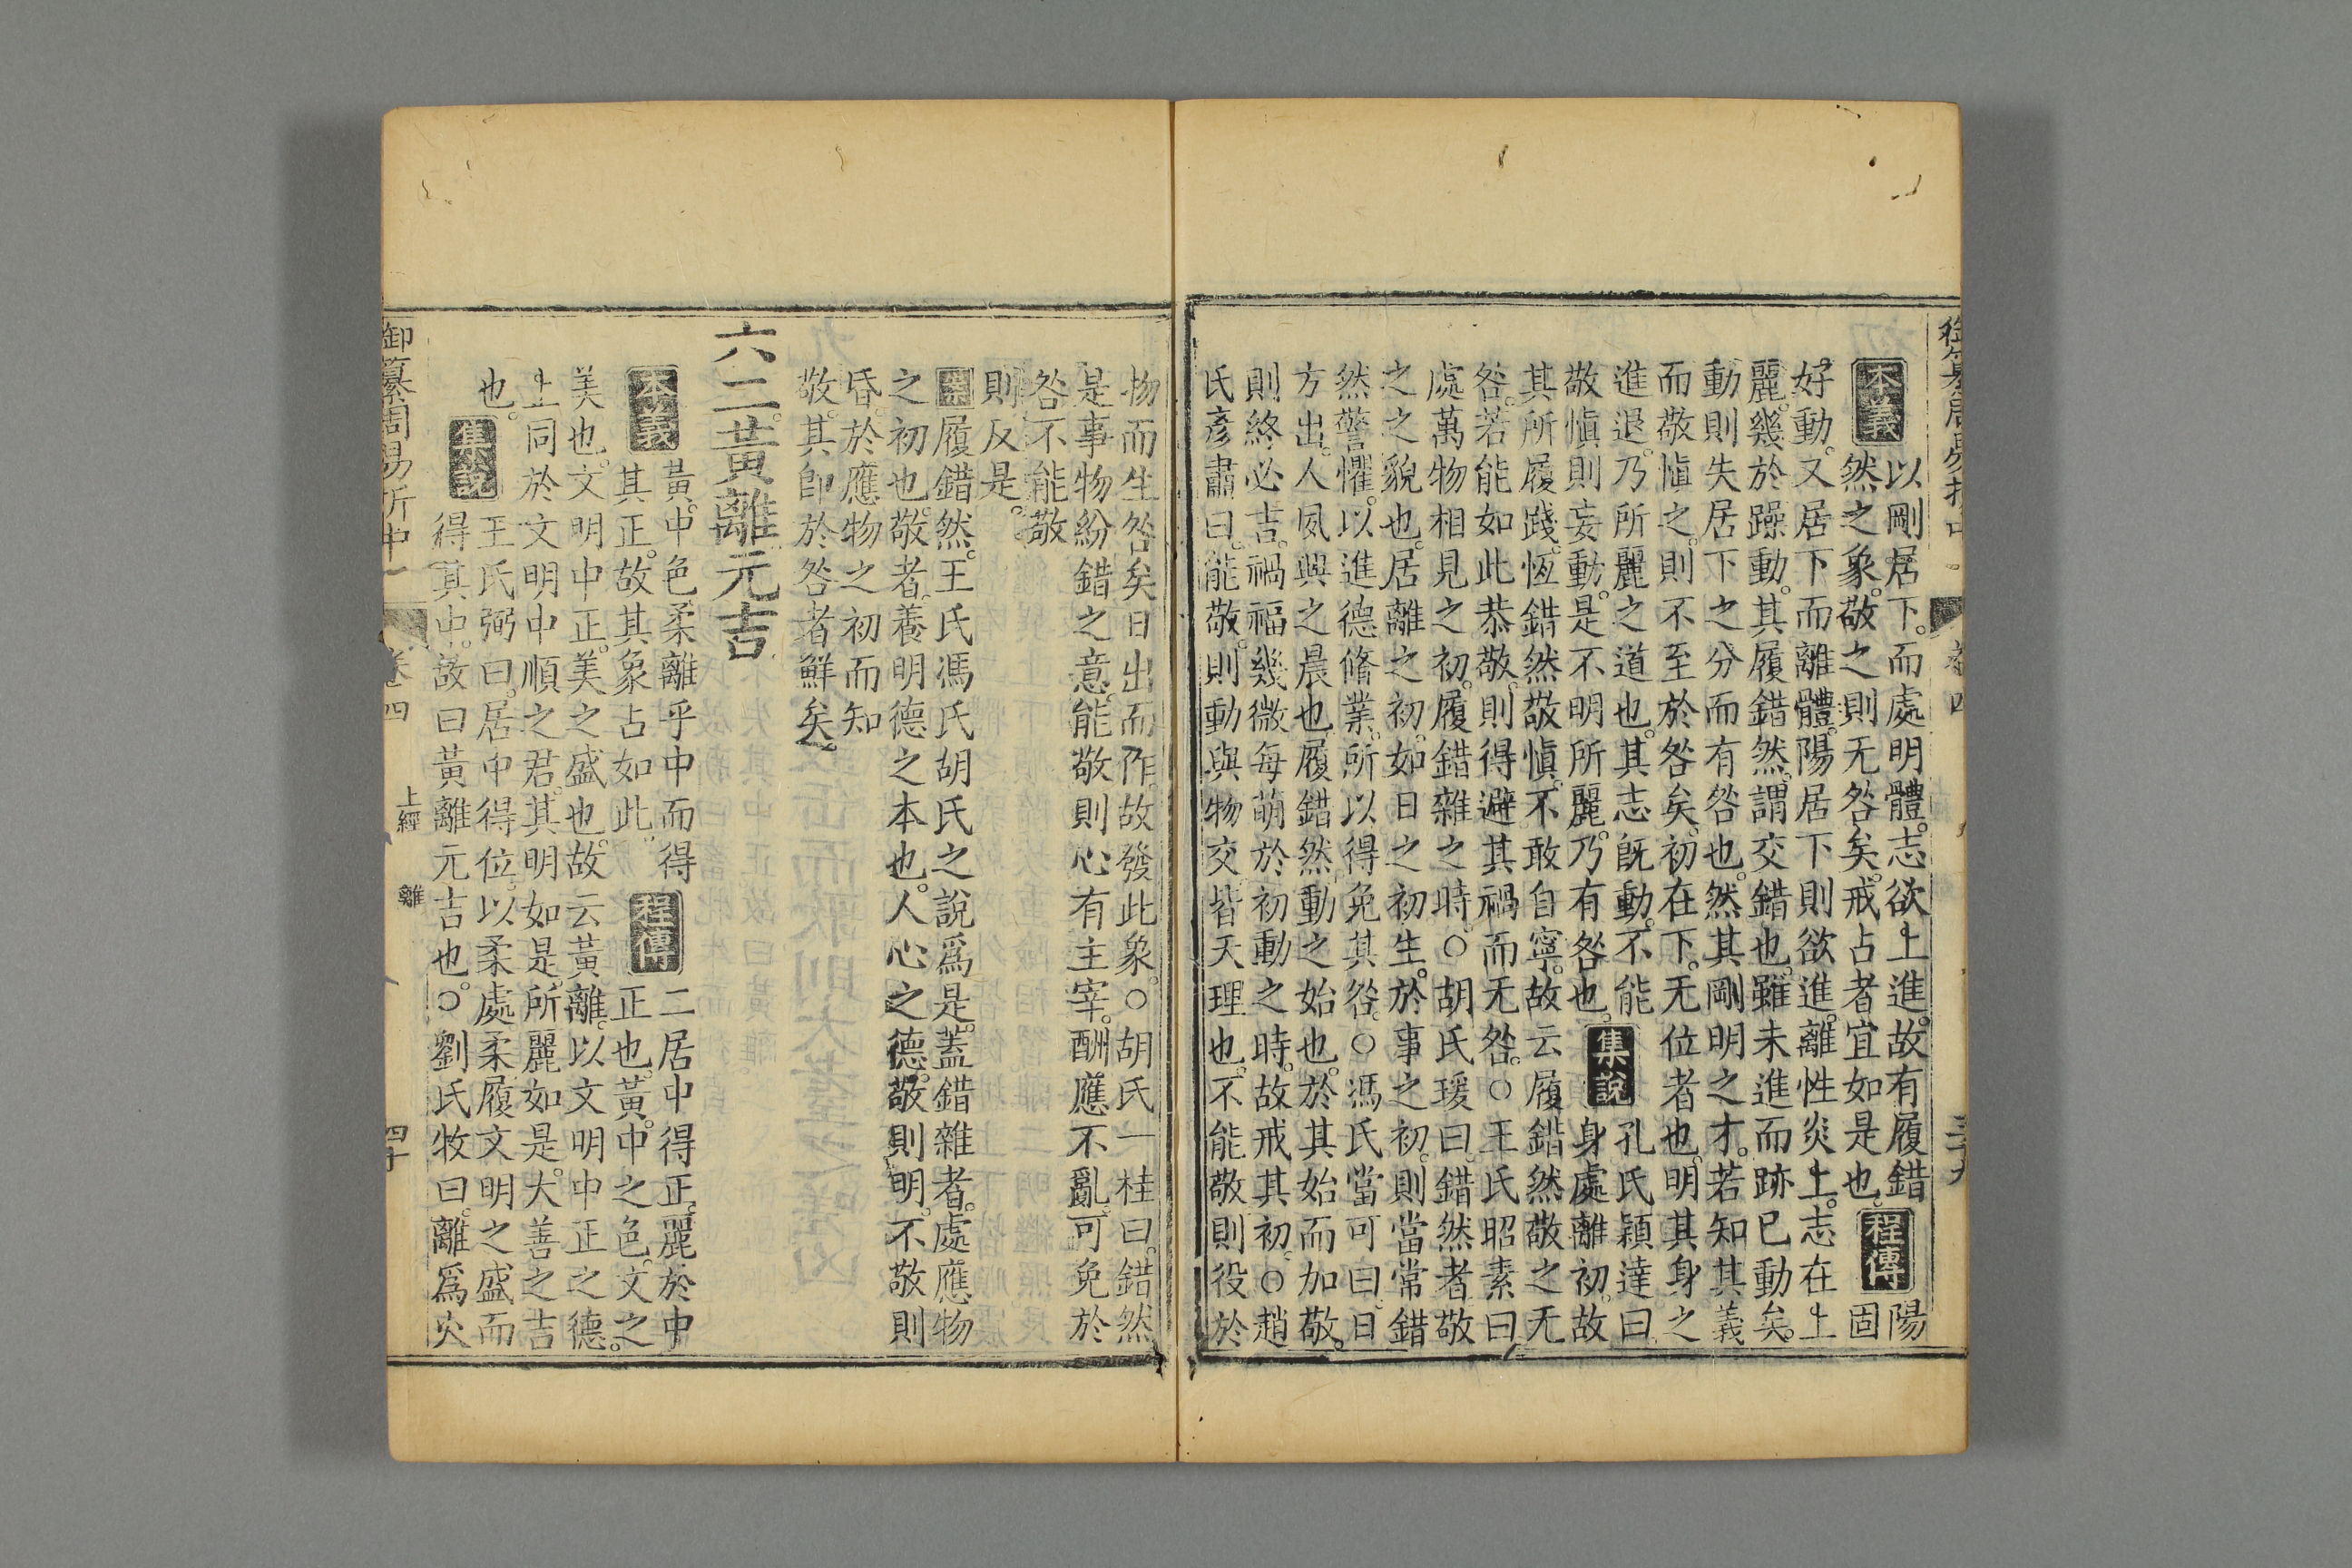 本義
以剛居下。而處明體。志欲上進。故有履錯
然之象。敬之則无咎矣。戒占者宜如是也。
程傳
陽
固
好動。又居下而離體。陽居下則欲進。離性炎上。志在上
麗。幾於躁動。其履錯然。謂交錯也。雖未進而跡已動矣。
動則失居下之分而有咎也。然其剛明之才。若知其義
而敬愼之。則不至於咎矣。初在下。无位者也。明其身之
進退。乃所麗之道也。其志旣動。不能
敬愼則妄動。是不明所麗。乃有咎也。
集說
孔氏穎達曰
身處離初。故
其所履踐。恆錯然敬愼。不敢自寧。故云履錯然敬之无
咎。若能如此恭敬。則得避其禍而无咎。○王氏昭素曰
處萬物相見之初。履錯雜之時。○胡氏瑗曰。錯然者敬
之之貌也。居離之初。如日之初生。於事之初。則當常錯
然警懼。以進德脩業。所以得免其咎。○馮氏當可曰。日
方出。人夙興之晨也。履錯然。動之始也。於其始而加敬。
則終必吉。禍福幾微。每萌於初動之時。故戒其初。○趙
氏彥肅曰。能敬。則動與物交皆天理也。不能敬則役於
物而生咎矣日出而作。故發此象。○胡氏一桂曰。錯然
是事物紛錯之意。能敬則心有主宰。酬應不亂。可免於
咎。不能敬
則反是。
履錯然。王氏馮氏胡氏之說爲是。蓋錯雜者。處應物
之初也。敬者。養明德之本也。人心之德。敬則明。不敬則
昏。於應物之初而知
敬。其即於咎者鮮矣。
六二黃離元吉
本義
黃。中色。柔離乎中而得
其正。故其象占如此。
程傳
二居中得正。麗於中
正也。黃。中之色。文之
美也。文明中正。美之盛也。故云黃離。以文明中正之德。
上同於文明中順之君。其明如是。所麗如是。大善之吉
也。
集說
王氏弼曰。居中得位。以柔處柔。履文明之盛而
得其中。故曰黃離元吉也。○劉氏牧曰。離爲火
御纂周易折中
卷四
上經
離
四十